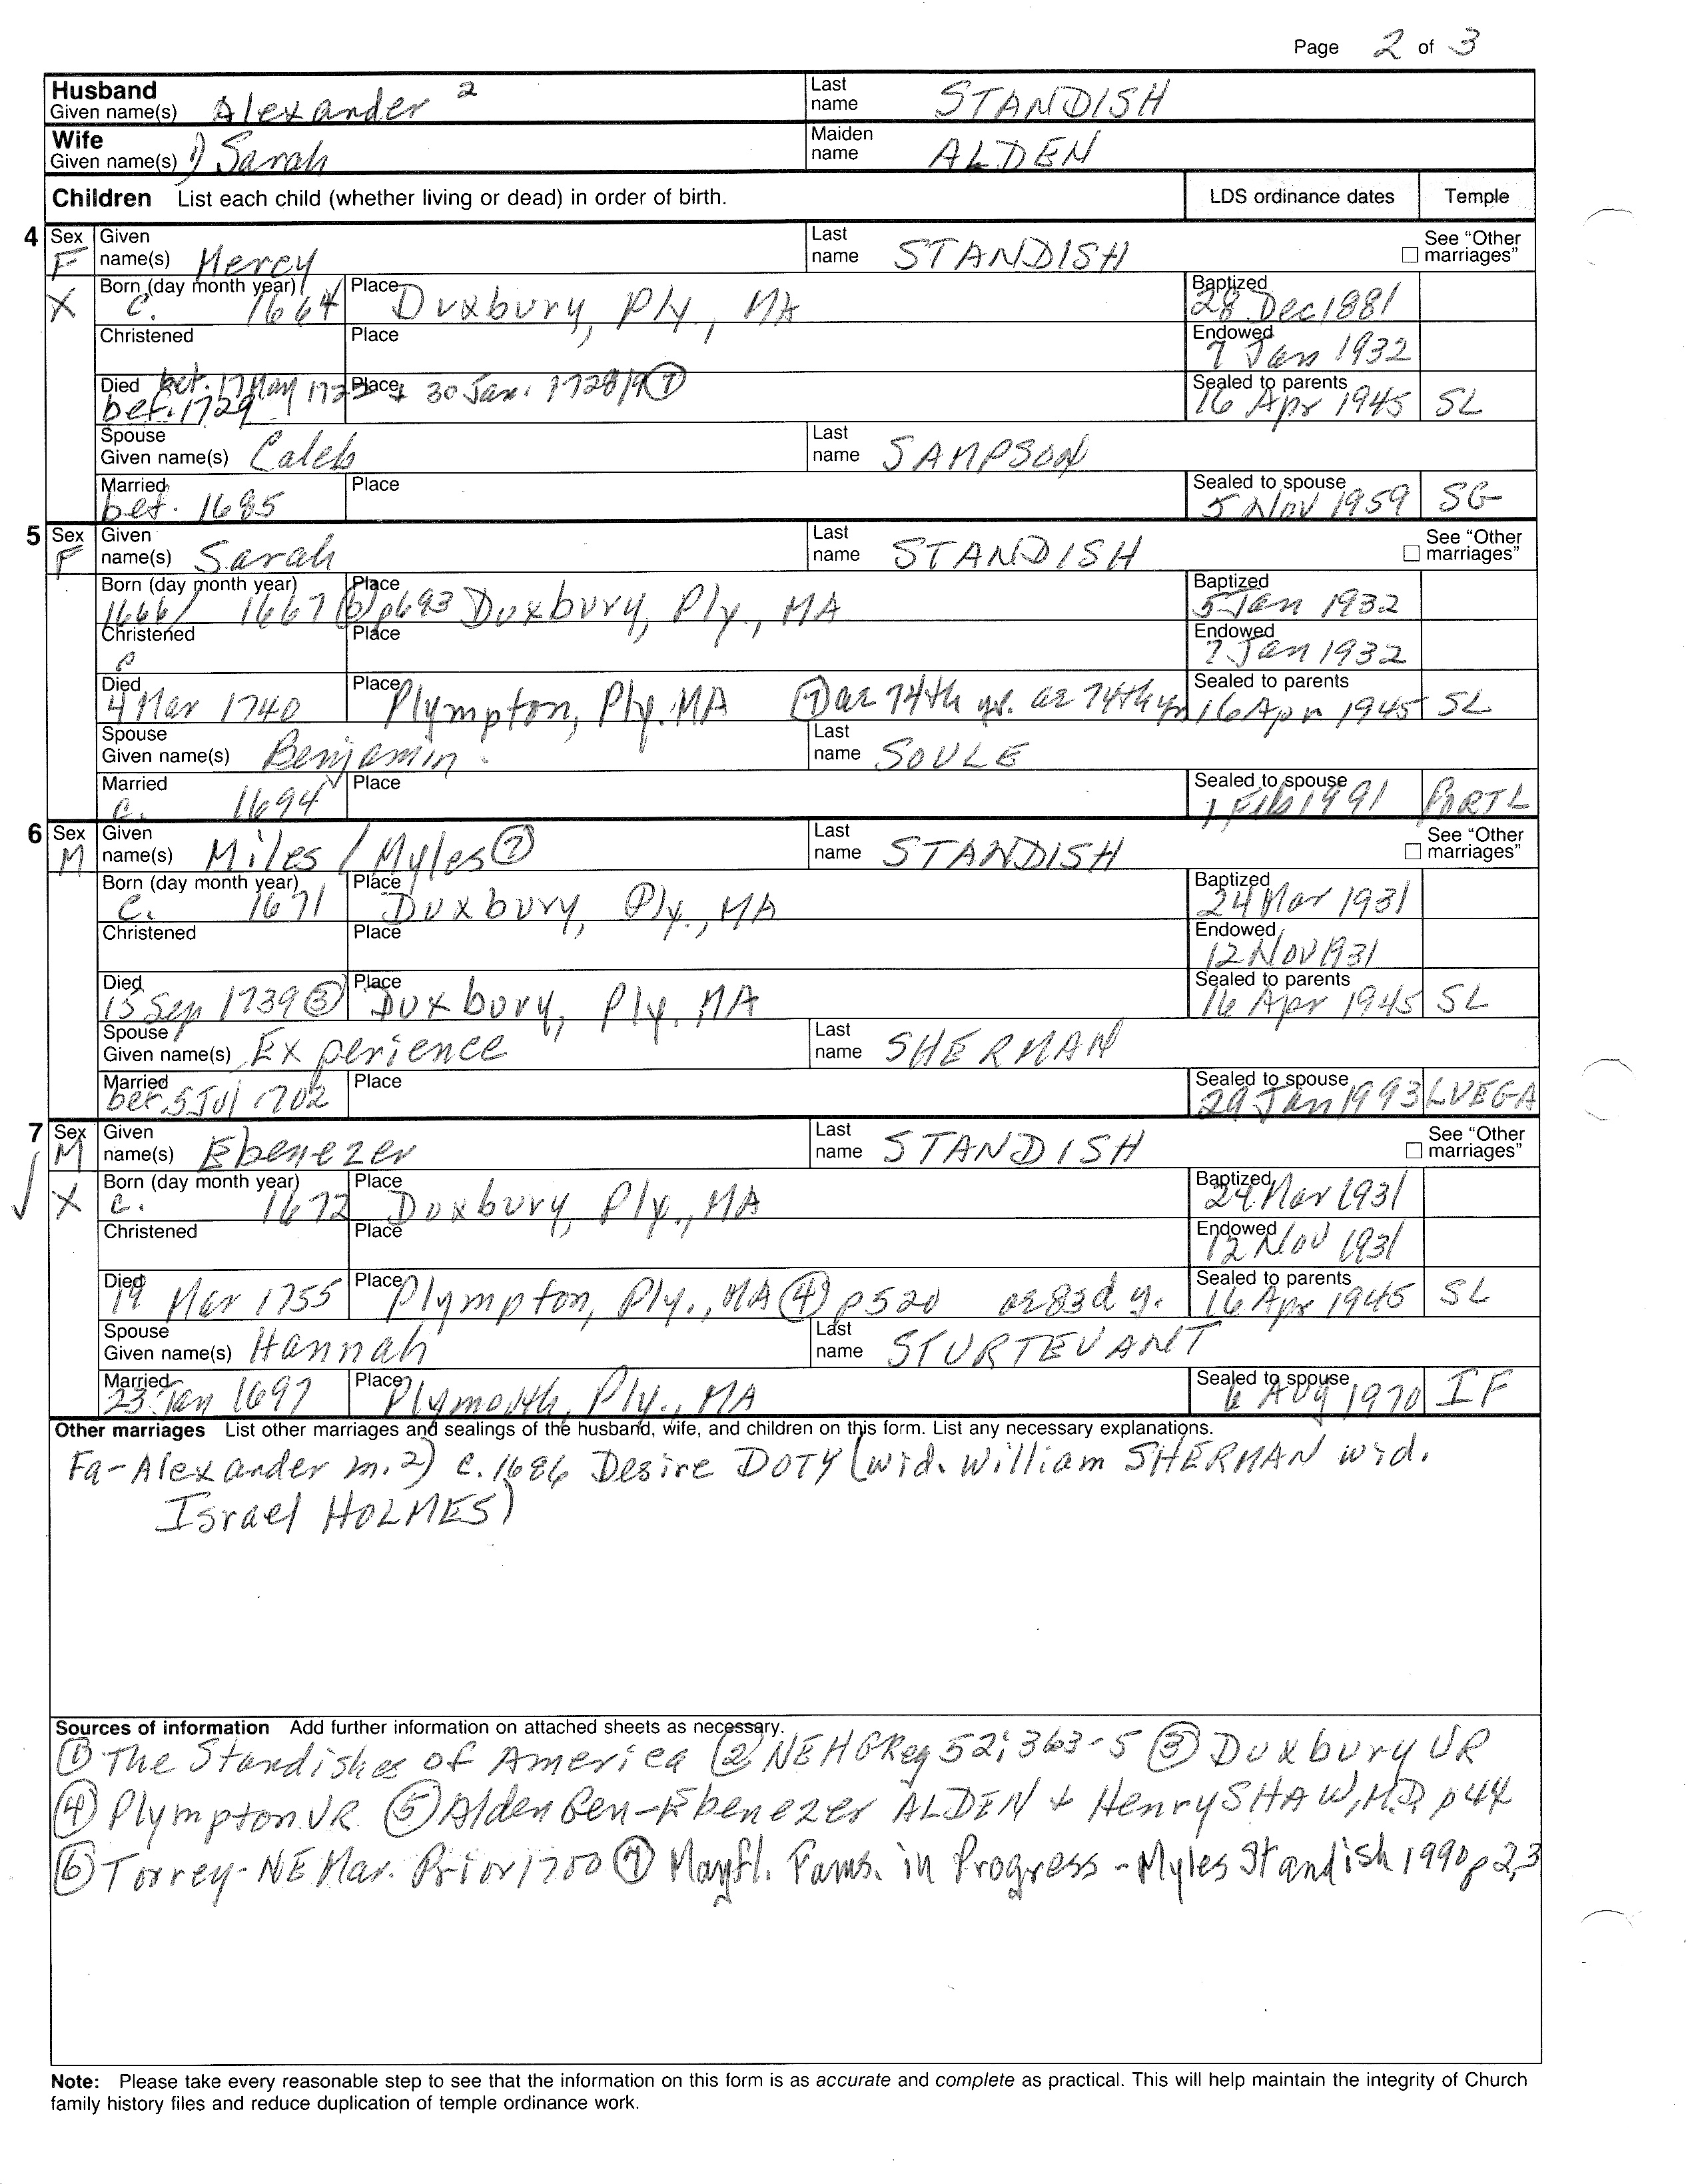 Page 2 of 3
Husband Given name(s) Alexander 2 Last name STANDISH
Wife Given name(s) 1) Sarah Maiden name ALDEN
Children List each child (whether living or dead) in order of birth. LDS ordinance dates Temple
4 Sex F Given name(s) Mercy Last name STANDISH See "Other marriages"
X Born (day month year) c. 1664 Place Duxbury, Ply., MA Baptized 28 Dec 1881
Christened Place Endowed 7 Jan 1932
Died bet. 17 May & 30 Jan. 1728/9 (7) bef. 1729 Place Sealed to parents 16 Apr 1945 SL
Spouse Given name(s) Caleb Last name SAMPSON
Married bef. 1685 Place Sealed to spouse 5 Nov 1959 SG
5 Sex F Given name(s) Sarah Last name STANDISH See "Other marriages"
Born (day month year) 1666/ 1667 (6) p693 Place Duxbury, Ply., MA Baptized 5 Jan 1932
Christened c Place Endowed 7 Jan 1932
Died 4 Mar 1740 Place Plympton, Ply. MA (7) ae 74th yr. ae 74th yr Sealed to parents 16 Apr 1945 SL
Spouse Given name(s) Benjamin Last name SOULE
Married c. 1694 Place Sealed to spouse 1 Feb 1991 PORTL
6 Sex M Given name(s) Miles / Myles (7) Last name STANDISH See "Other marriages"
Born (day month year) c. 1671 Place Duxbury, Ply., MA Baptized 24 Mar 1931
Christened Place Endowed 12 Nov 1931
Died 15 Sep 1739 (3) Place Duxbury, Ply. MA Sealed to parents 16 Apr 1945 SL
Spouse Given name(s) Experience Last name SHERMAN
Married bef. 5 Jul 1702 Place Sealed to spouse 29 Jan 1993 LVEGA
7 Sex M Given name(s) Ebenezer Last name STANDISH See "Other marriages"
X Born (day month year) c. 1672 Place Duxbury, Ply., MA Baptized 24 Mar 1931
Christened Place Endowed 12 Nov 1931
Died 19 Mar 1755 Place Plympton, Ply., MA (4) p520 ae 83d y. Sealed to parents 16 Apr 1945 SL
Spouse Given name(s) Hannah Last name STURTEVANT
Married 23 Jan 1697 Place Plymouth, Ply., MA Sealed to spouse 6 Aug 1970 IF
Other marriages List other marriages and sealings of the husband, wife, and children on this form. List any necessary explanations.
Fa-Alexander m. 2) c. 1686 Desire DOTY (wid. William SHERMAN wid.
Israel HOLMES)
Sources of information Add further information on attached sheets as necessary.
(1) The Standishes of America (2) NEHGReg 52:363-5 (3) Duxbury VR
(4) Plympton VR (5) Alden Gen-Ebenezer ALDEN & Henry SHAW, M.D. p44
(6) Torrey-NE Mar. Prior 1700 (7) Mayfl. Fams. in Progress - Myles Standish 1990 p 2,3
Note: Please take every reasonable step to see that the information on this form is as accurate and complete as practical. This will help maintain the integrity of Church
family history files and reduce duplication of temple ordinance work.